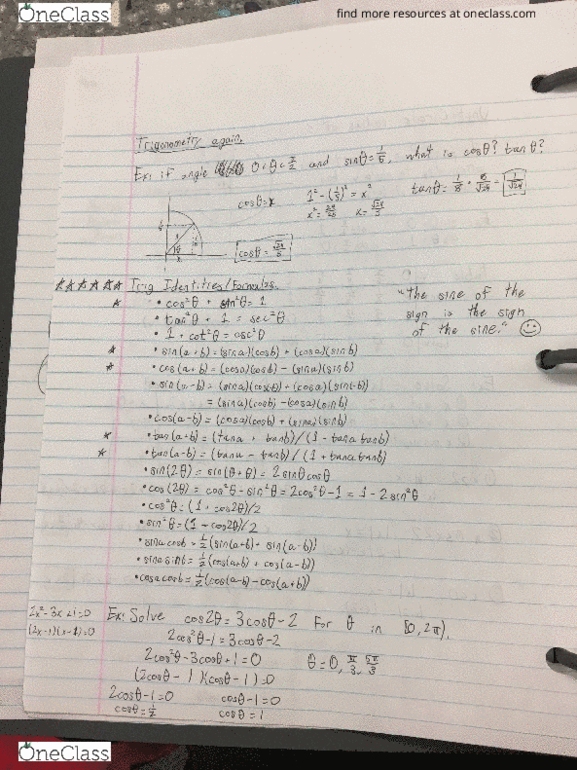 OneClass
find more resources at oneclass.com
Trigonometry again.
Ex: if angle 0<θ<π/2 and sinθ=1/5, what is cosθ? tanθ?
cosθ=x
1²-(1/5)²=x²
x²=24/25 x=√24/5
tanθ=1/5·5/√24=1/√24
cosθ=√24/5
☆☆☆☆☆☆ Trig Identities/Formulas
☆ • cos²θ + sin²θ=1
• tan²θ + 1 = sec²θ
• 1 + cot²θ = csc²θ
"the sine of the
sign is the sign
of the sine." ☺
☆ • sin(a+b)=(sina)(cosb)+(cosa)(sinb)
☆ • cos(a+b)=(cosa)(cosb) - (sina)(sinb)
• sin(a-b)=(sina)(cos-b)+(cosa)(sin(-b))
= (sina)(cosb)-(cosa)(sinb)
• cos(a-b)=(cosa)(cosb)+(sina)(sinb)
☆ • tan(a+b)=(tana + tanb)/(1-tana tanb)
☆ • tan(a-b)=(tana - tanb)/(1+tana tanb)
• sin(2θ)=sin(θ+θ)=2sinθcosθ
• cos(2θ)=cos²θ-sin²θ=2cos²θ-1=1-2sin²θ
• cos²θ=(1+cos2θ)/2
• sin²θ=(1-cos2θ)/2
• sina cosb=1/2(sin(a+b)+sin(a-b))
• sina sinb=1/2(cos(a+b)+cos(a-b))
• cosa cosb=1/2(cos(a-b)-cos(a+b))
2x²-3x+1=0
(2x-1)(x-1)=0
Ex: Solve cos2θ=3cosθ-2 for θ in [0,2π).
2cos²θ-1=3cosθ-2
2cos²θ-3cosθ+1=0
θ=0, π/3, 5π/3
(2cosθ-1)(cosθ-1)=0
2cosθ-1=0 cosθ-1=0
cosθ=1/2 cosθ=1
OneClass